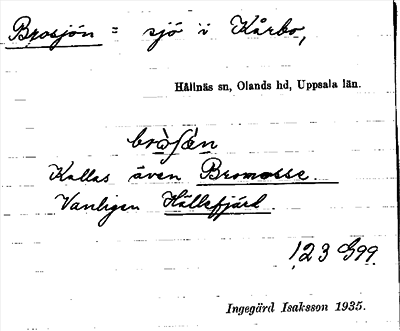 Brosjön = sjö i Kårbo,
Hållnäs sn, Olands hd, Uppsala län.
bròʃæ̀n
Kallas även Bromosse.
Vanligen Hällefjärd.
123 G99.
Ingegärd Isaksson 1935.